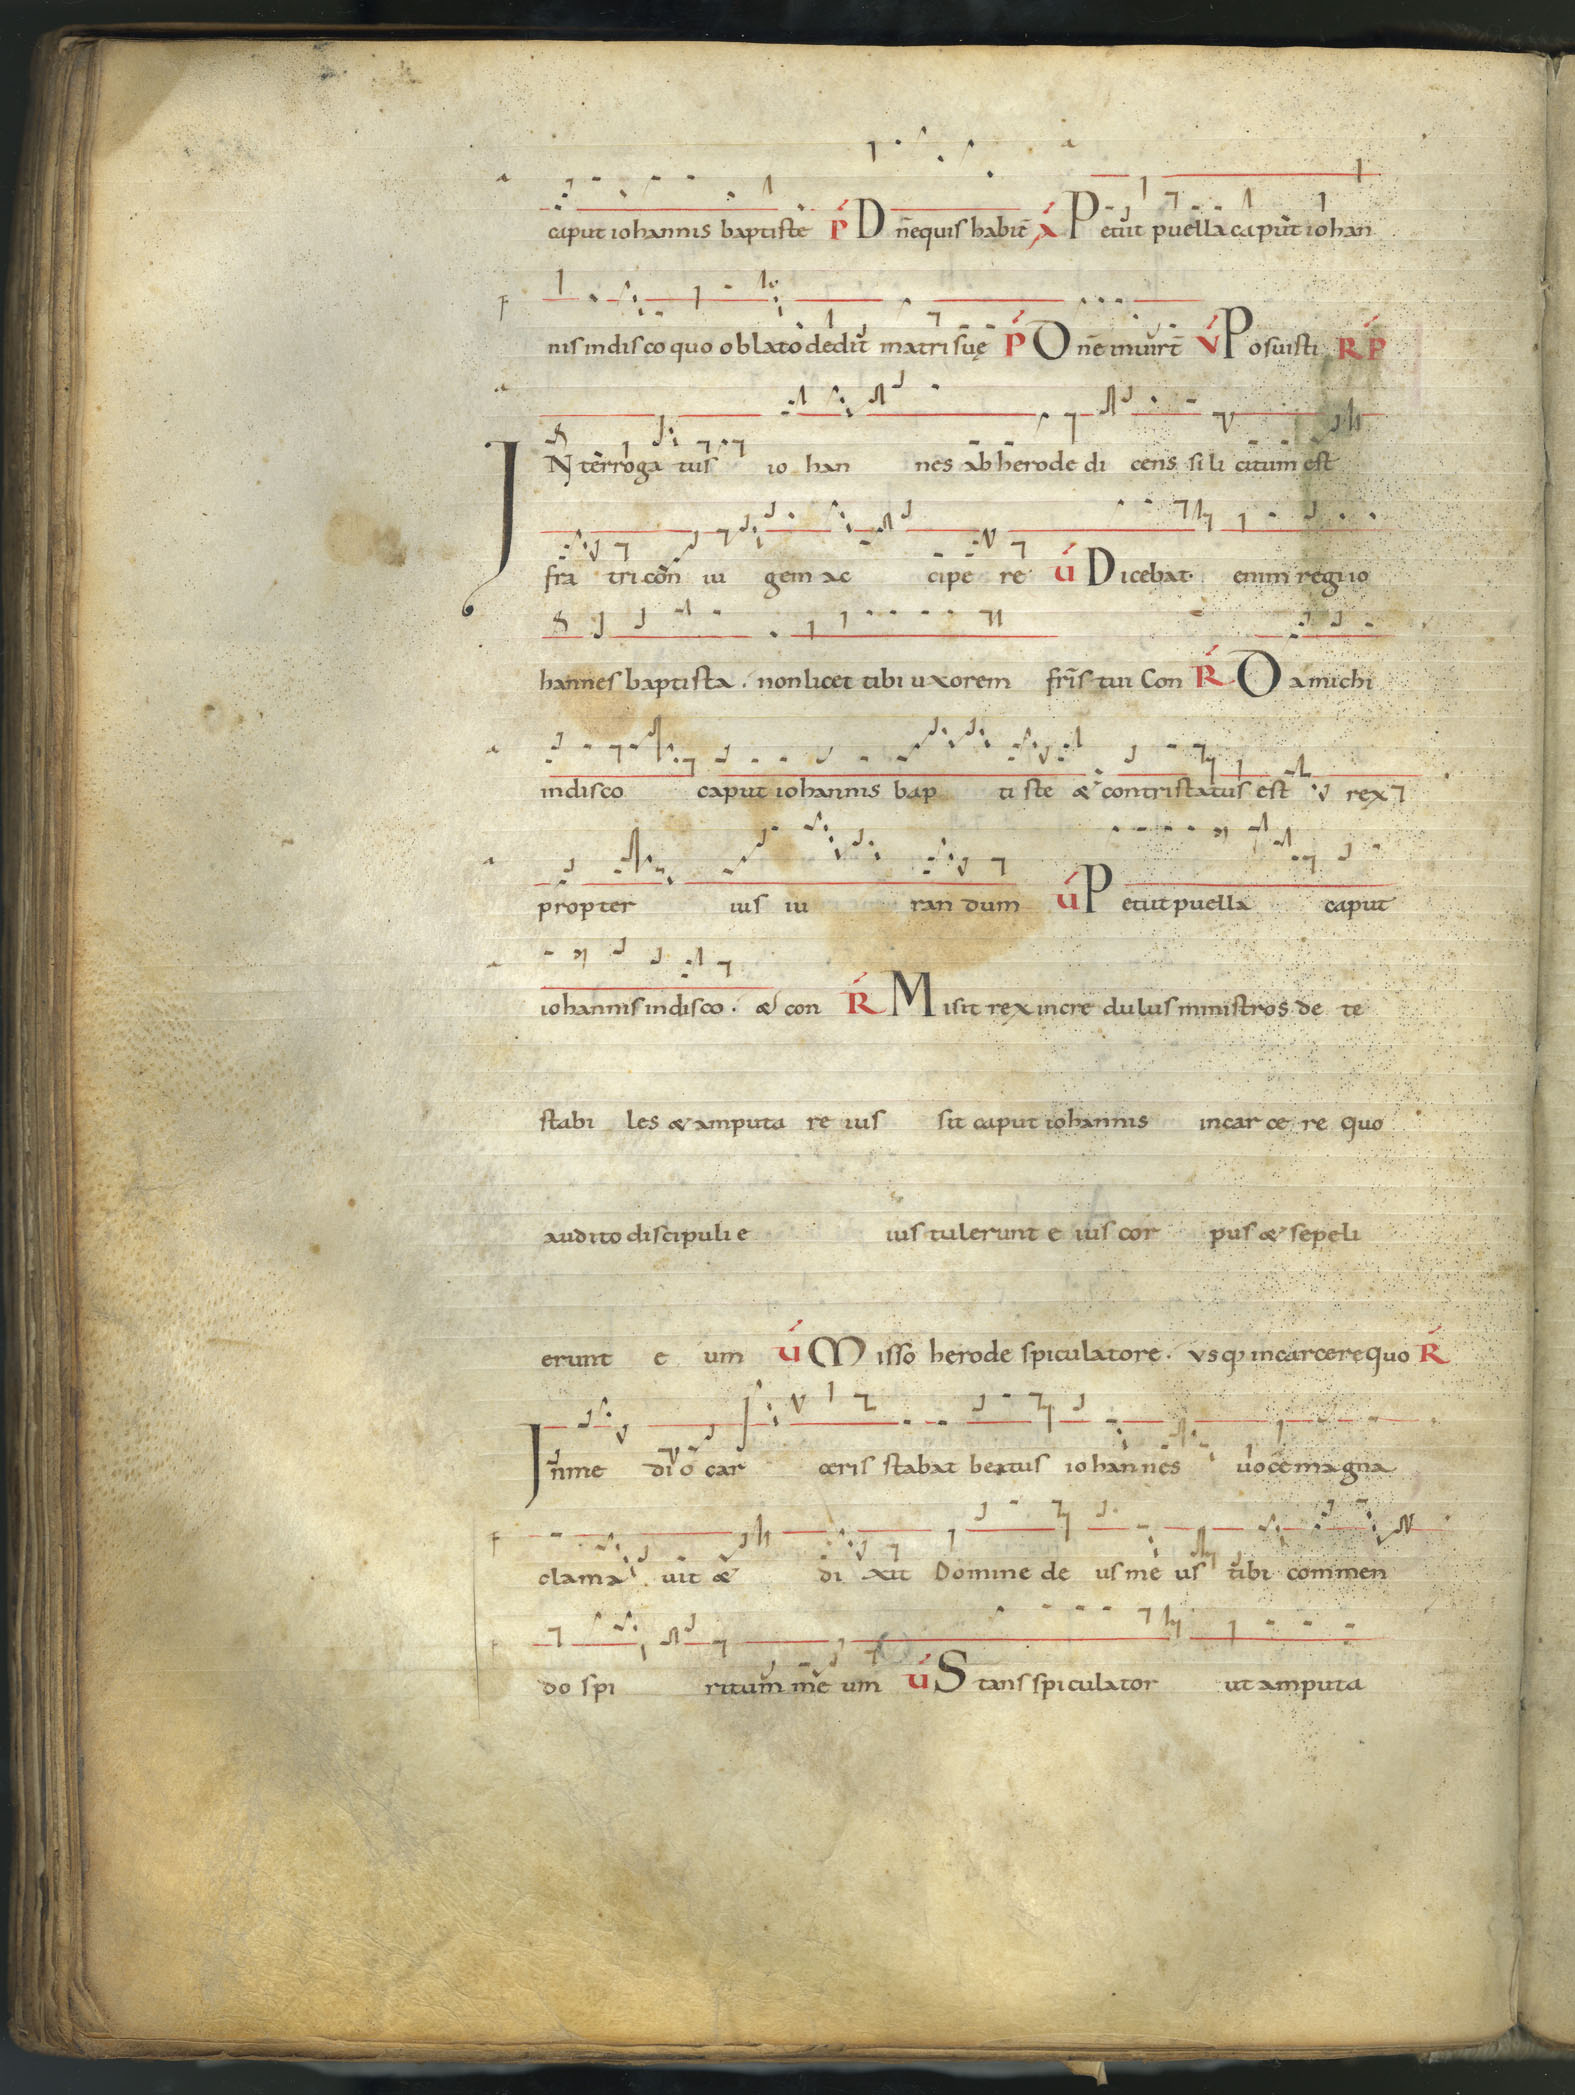 caput iohannis baptiste P D n̄e quis habit̄ A Petiit puella caput iohan
nis in disco quo oblato dedit matri suę P D n̄e inuirt̄ V Posuisti R P
INterroga tus io han nes ab herode di cens si li citum est
fra tri con iu gem ac cipe re V Dicebat enim regi io
hannes baptista . non licet tibi uxorem fr̄is tui Con R Da michi
in disco caput iohannis bap ti ste & contristatus est rex
propter ius iu ran dum V Petiit puella caput
iohannis in disco . & con R Misit rex incre dulus ministros de te
stabi les & amputa re ius sit caput iohannis in car ce re quo
audito discipuli e ius tulerunt e ius cor pus & sepeli
erunt e um V Misso herode spiculatore . vsq; in carcere quo R
In me dio car ceris stabat beatus iohannes uoce magna
clama uit & di xit Domine de us me us tibi commen
do spi ritum me um V Stans spiculator ut amputa